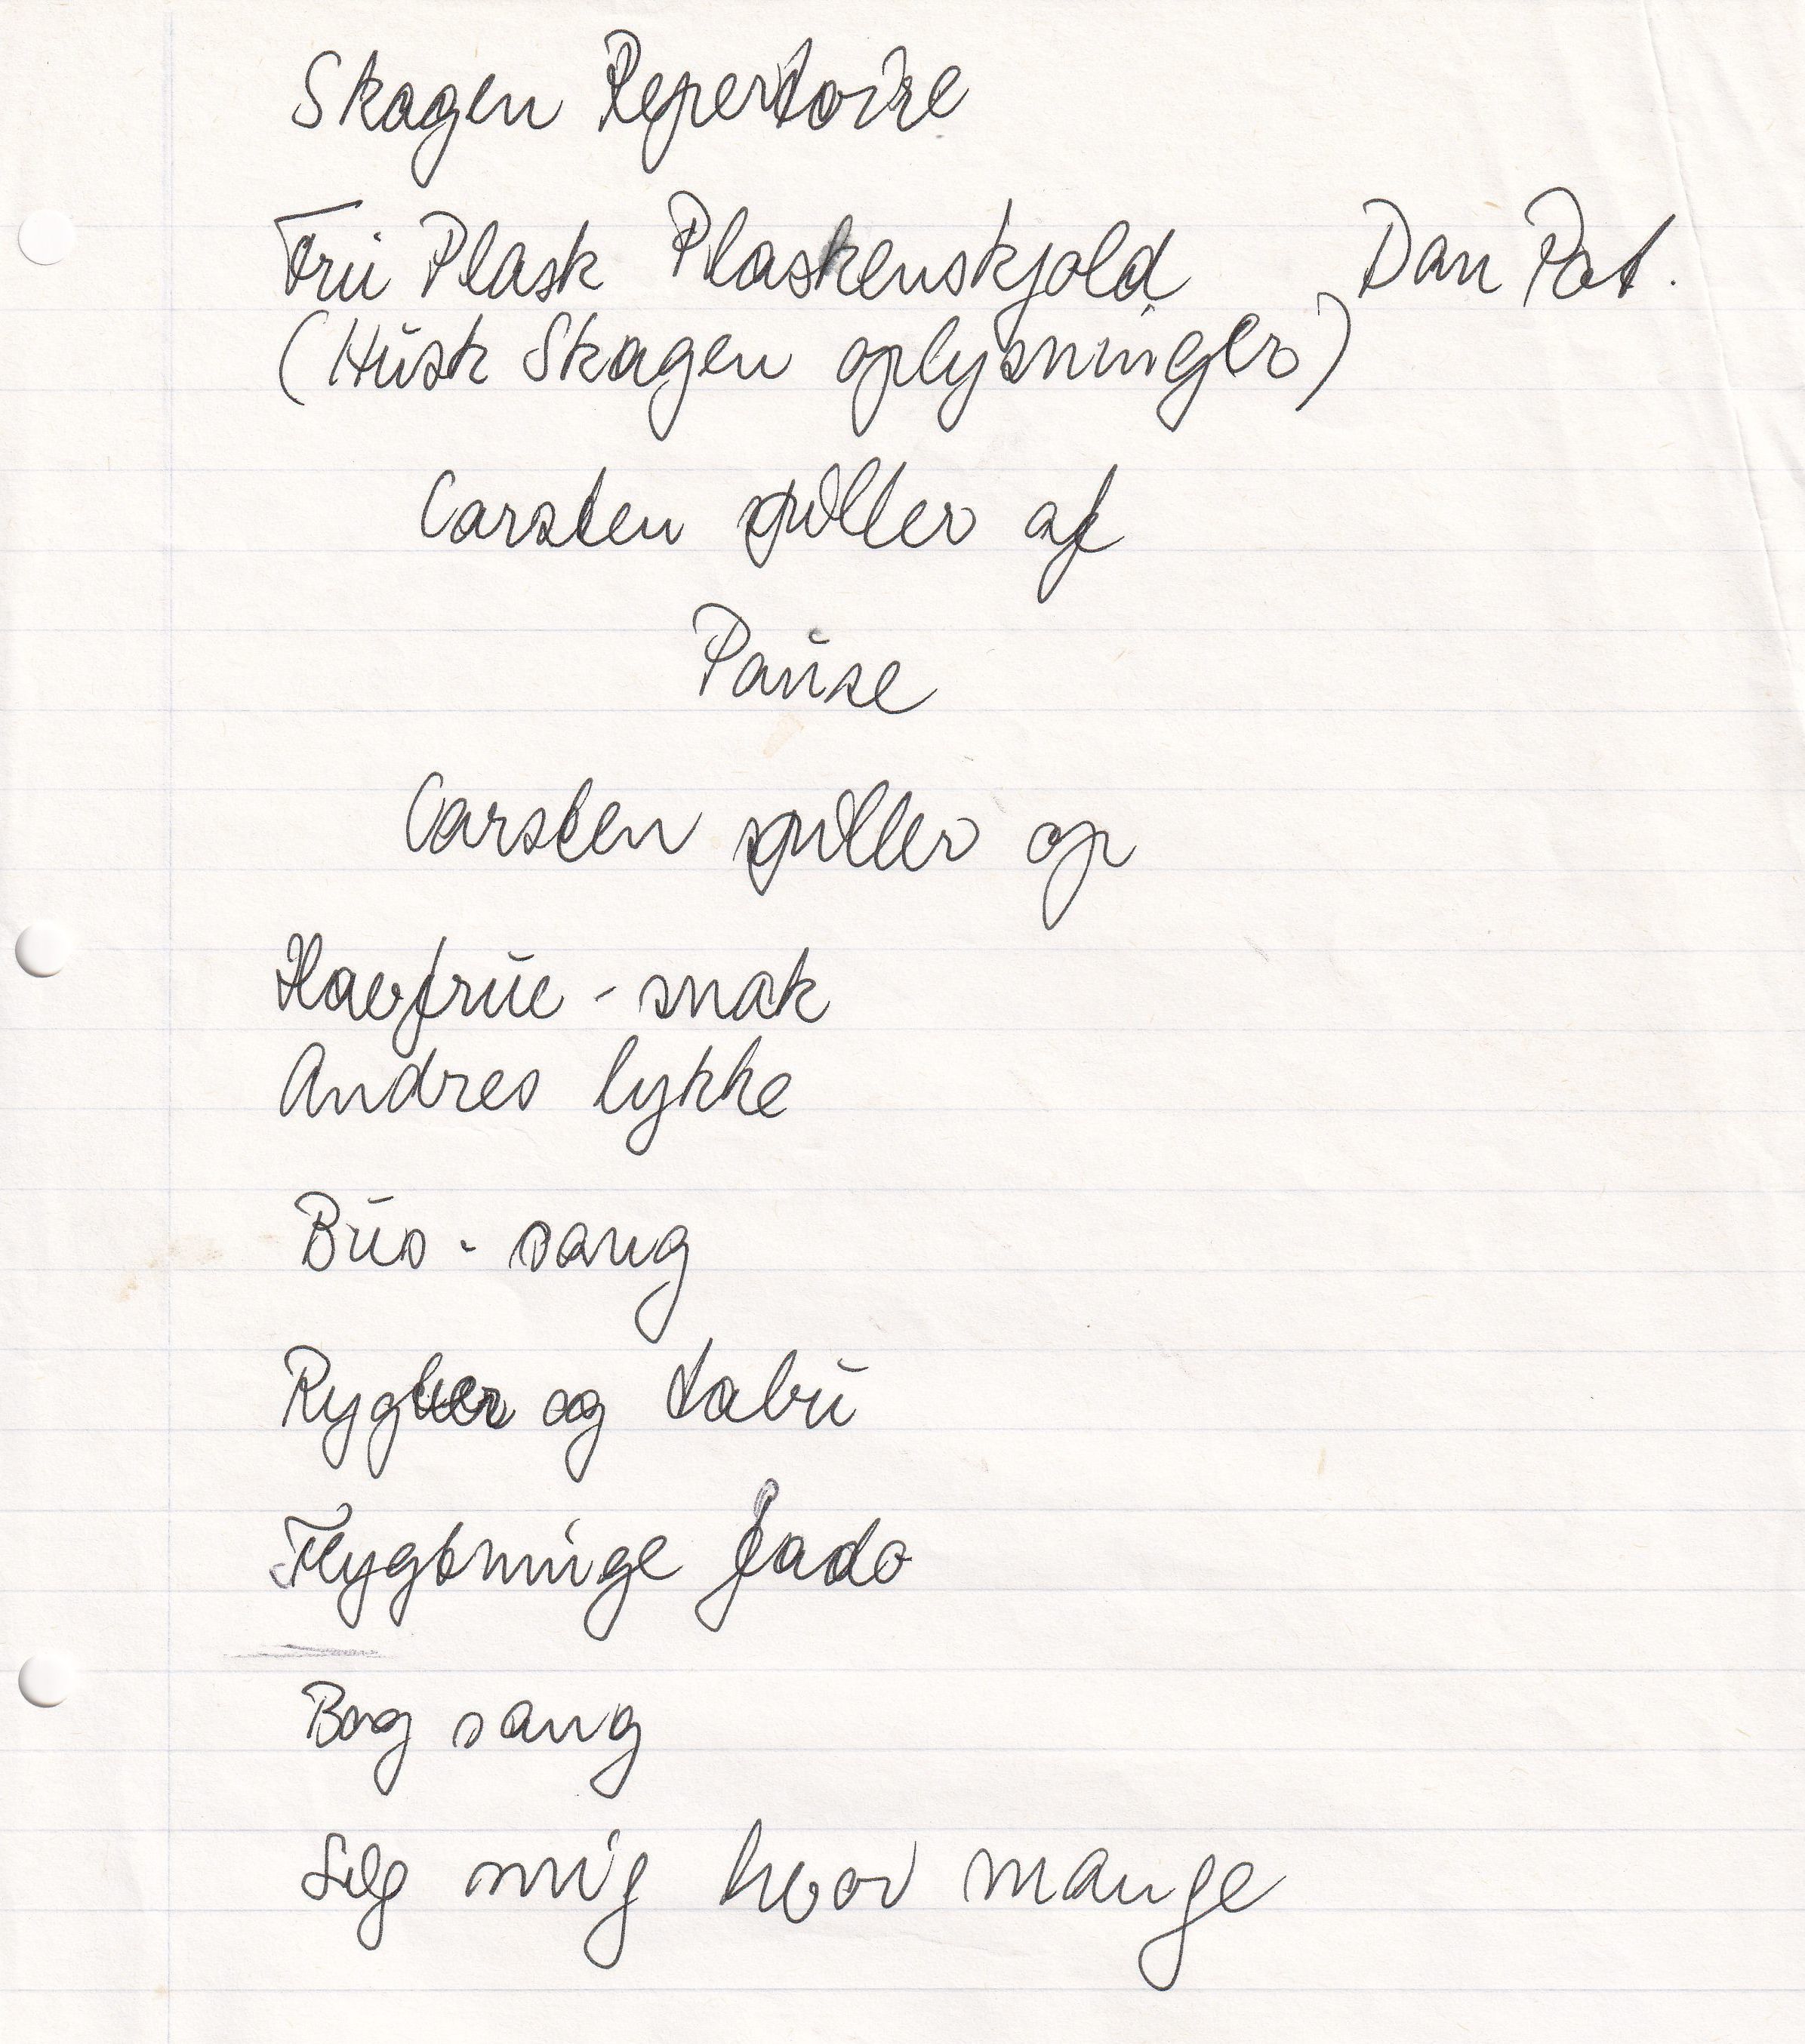 Skagen Repertoire
Fru Plask Plaskenskjold Dan Pat.
(Husk Skagen oplysninger)
Carsten spiller af
Pause
Carsten spiller op
Havfrue - snak
Andres lykke
Bus - sang
Rygter og tabu
Flygtninge fado
Bog sang
Sig mig hvor mange